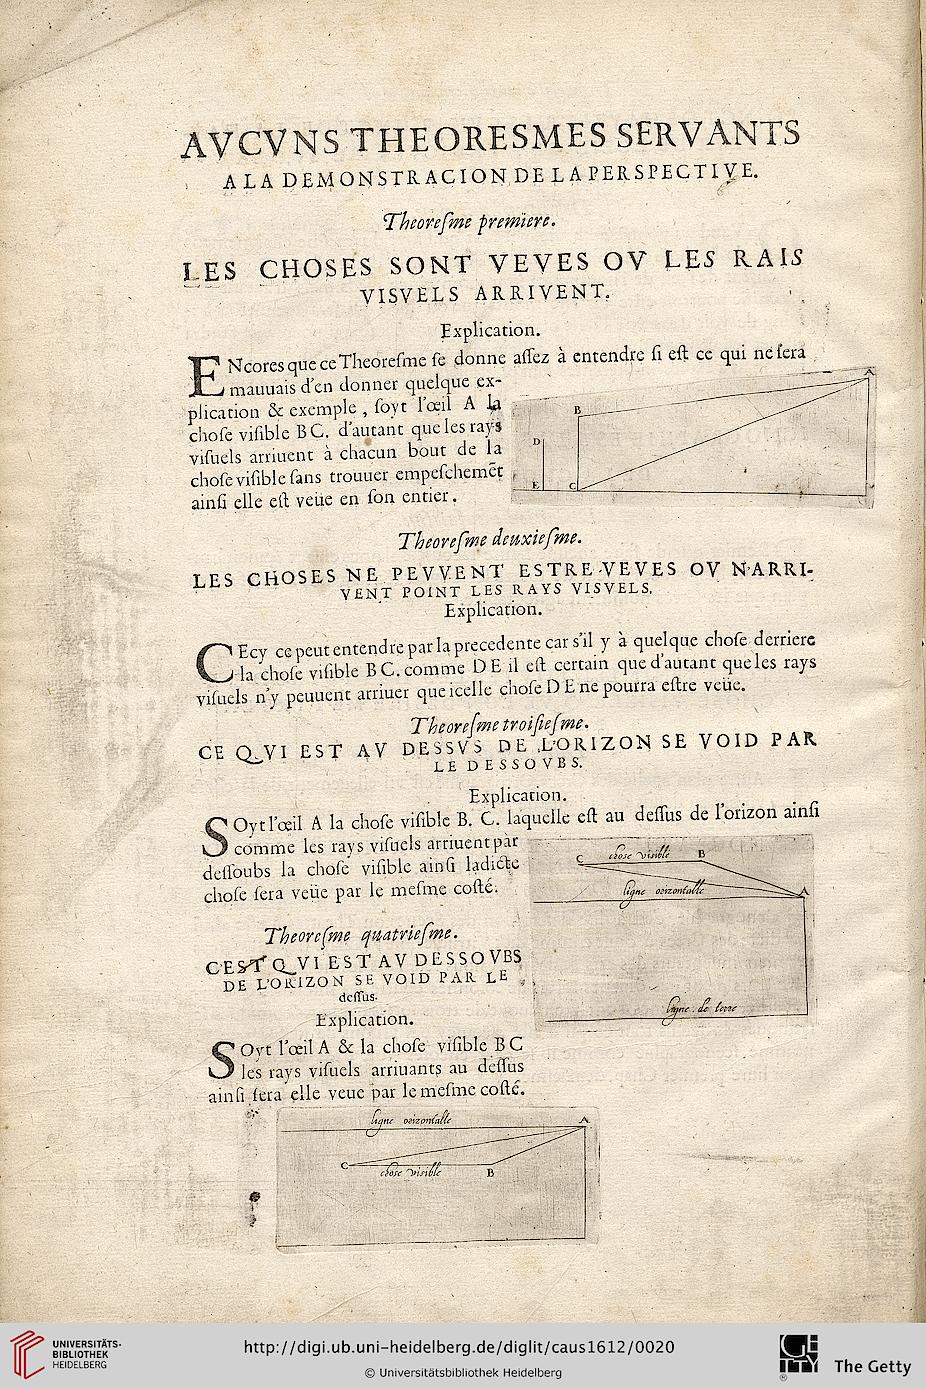 AVCVNS THEORESMES SERVANTS
A LA DEMONSTRACION DE LA PERSPECTIVE.
Theoreſme premiere.
LES CHOSES SONT VEVES OV LES RAIS
VISVELS ARRIVENT.
Explication.
ENcores que ce Theoreſme ſe donne aſſez à entendre ſi eſt ce qui ne ſera
mauuais d'en donner quelque ex-
plication & exemple, ſoyt l'œil A la
choſe viſible B C. d'autant que les rays
viſuels arriuent à chacun bout de la
choſe viſible ſans trouuer empeſchemẽt
ainſi elle eſt veüe en ſon entier.
A
B
D
E
C
Theoreſme deuxieſme.
LES CHOSES NE PEVVENT ESTRE VEVES OV N'ARRI-
VENT POINT LES RAYS VISVELS.
Explication.
CEcy ce peut entendre par la precedente car s'il y à quelque choſe derriere
la choſe viſible B C. comme D E il eſt certain que d'autant que les rays
viſuels n'y peuuent arriuer que icelle choſe D E ne pourra eſtre veüe.
Theoreſme troiſieſme.
CE QVI EST AV DESSVS DE L'ORIZON SE VOID PAR
LE DESSOVBS.
Explication.
SOyt l'œil A la choſe viſible B. C. laquelle eſt au deſſus de l'orizon ainſi
comme les rays viſuels arriuent par
deſſoubs la choſe viſible ainſi ladicte
choſe ſera veüe par le meſme coſté.
C choſe viſible B
A
ligne orizontalle
ligne de terre
Theoreſme quatrieſme.
C'EST QVI EST AV DESSOVBS
DE L'ORIZON SE VOID PAR LE
deſſus.
Explication.
SOyt l'œil A & la choſe viſible B C
les rays viſuels arriuants au deſſus
ainſi ſera elle veue par le meſme coſté.
ligne orizontalle
A
C
choſe viſible B
UNIVERSITÄTS-
BIBLIOTHEK
HEIDELBERG
http://digi.ub.uni-heidelberg.de/diglit/caus1612/0020
© Universitätsbibliothek Heidelberg
GETTY
The Getty